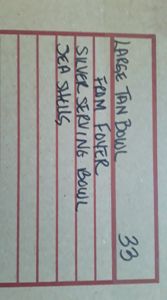 LARGE TAN BOWL 33
FROM FOYER
SILVER SERVING BOWL
SEA SHELLS